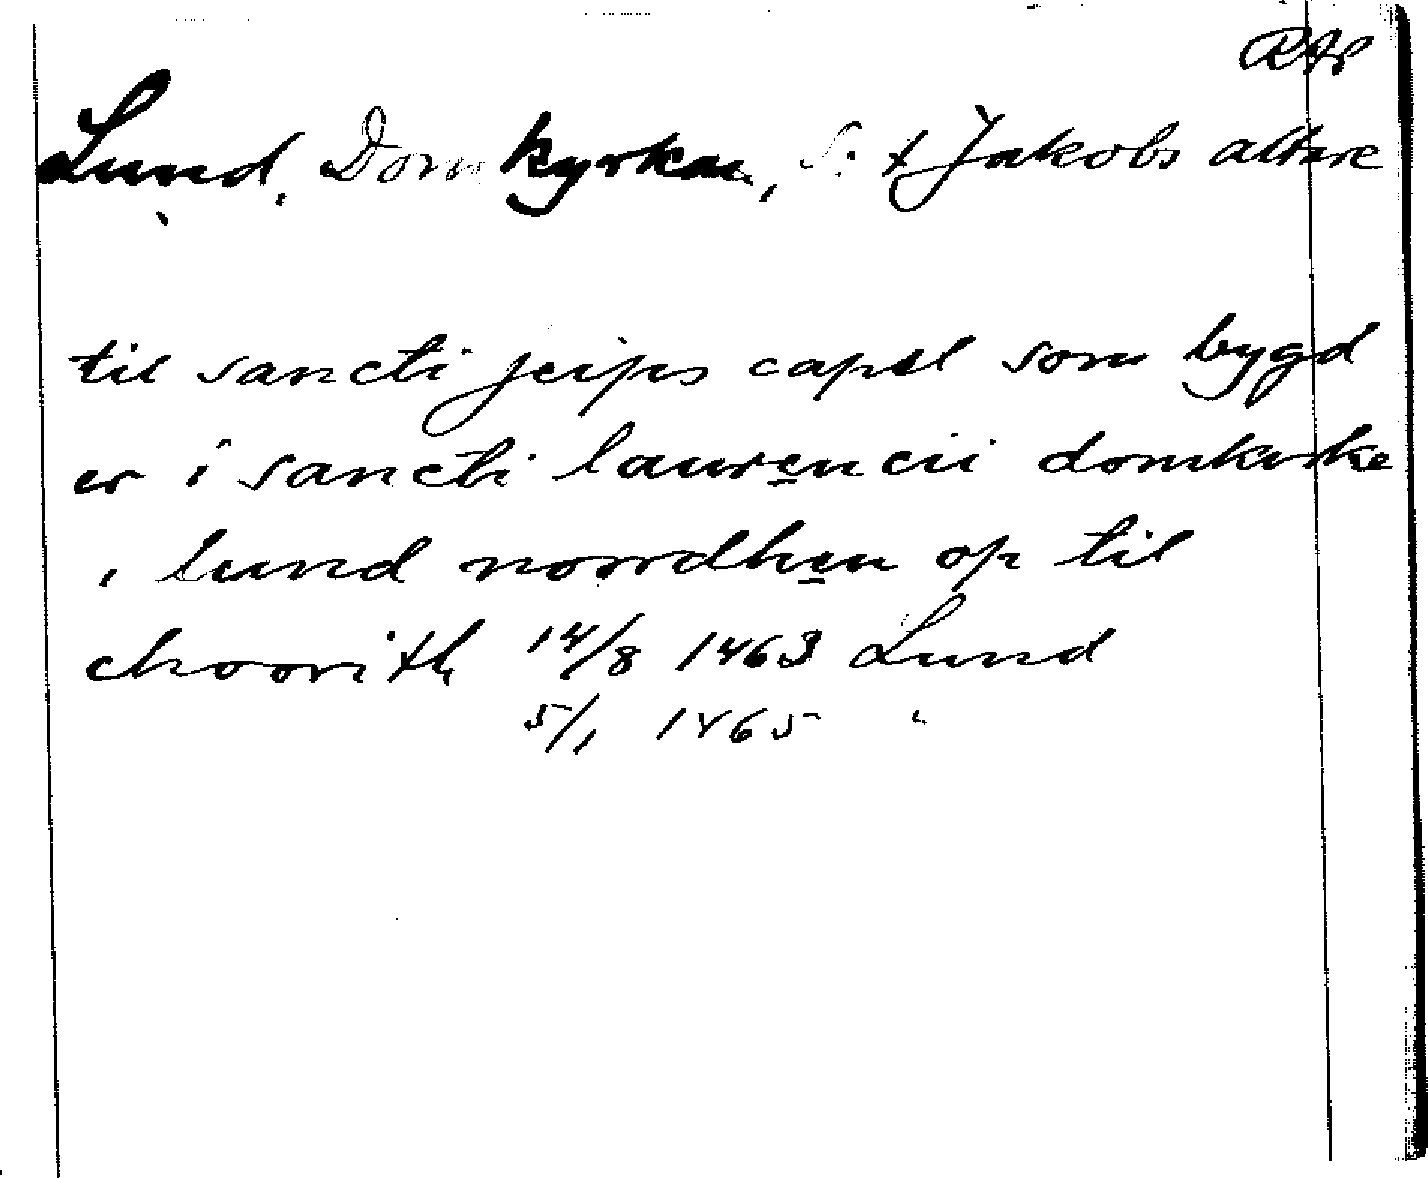 RAP
Lund, Domkyrkan, S:t Jakobs altare
til sancti jeips capel som bygd
er i sancti laurencii domkirke
i lund nordhen op til
choorith 14/8 1463 Lund
5/1 1465 "